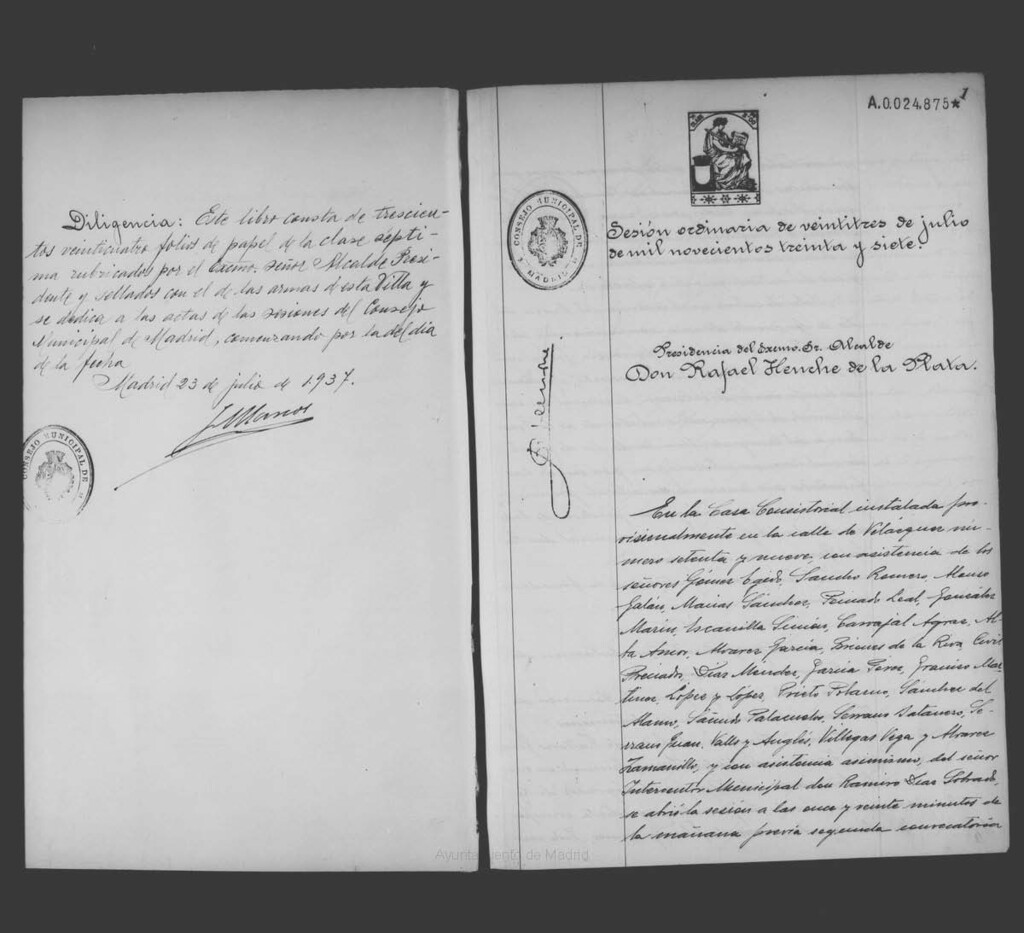 Diligencia: Este libro consta de trescien-
tos veinticuatro folios de papel de la clase septi-
ma rubricados por el Excmo. Señor Alcalde Presi-
dente y sellados con el de las armas d esta Villa y
se dedica a las actas de las sesiones del Consejo
Municipal de Madrid, comenzando por la del dia
de la fecha
Madrid 23 de julio de 1937.
CONSEJO MUNICIPAL DE
A.0.024.875* 1
CONSEJO MUNICIPAL DE
MADRID
Sesión ordinaria de veintitres de julio
de mil novecientos treinta y siete.
Presidencia del Excmo. Sr. Alcalde
Don Rafael Henche de la Plata.
En la Casa Consistorial instalada pro-
visionalmente en la calle de Velázquez nú-
mero setenta y nueve, con asistencia de los
señores Gómez Egido, Sancho Romero, Mouro
Galán, Macías Sánchez, Peinado Leal, González
Marín, Escanilla Simón, Carvajal Agraz, Al-
ba Amor, Alvarez García, Briones de la Riva, Civit
Preciados, Díaz Méndez, García Pérez, Granizo Mar-
tínez, López y López, Prieto Polanco, Sánchez del
Alamo, Palazuelos, Serrano Batanero, Se-
rrano Juan, Valls y Anglés, Villegas Vega y Alvarez
Zamanillo, y con asistencia asimismo, del señor
Interventor Municipal don Ramiro Díaz Sobrado,
se abrió la sesión a las once y veinte minutos de
la mañana previa segunda convocatoria
Ayuntamiento de Madrid